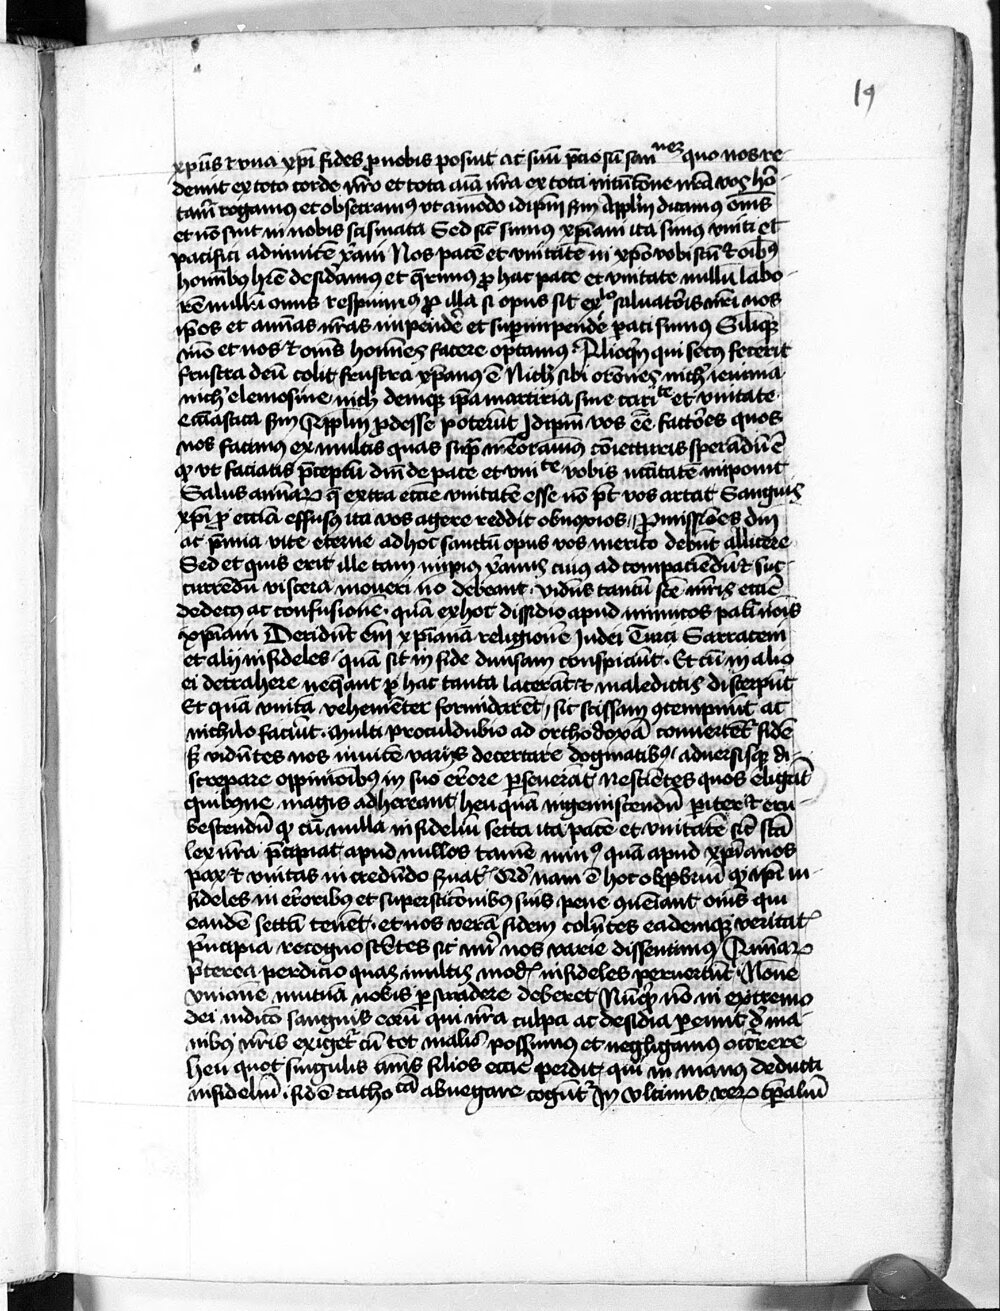 19
xp̄us et una xpi fides p nobis posuit ac suū p̄ciosū sanguinez quo nos re-
demit ex toto corde nr̄o et tota aīa nr̄a ex tota intenc̄one nr̄a vos hor-
tam̄ rogamus et obsecramus ut amodo idip̄m s̄m Applm̄ dicamus om̄s
et nō sint in nobis scismata Sed sic̄ sumus xp̄iani ita simus uniti et
pacifici adinuicē Nos pacē et unitatē in xpō vobiscū et oibus
hominibus desideramus et querimus p hac pace et unitate nullū labo-
rē respuimus p illa si opus sit exemplo saluatoris nr̄i nos
ip̄os et animas nr̄as impendē et superimpendē parati sumus Similiqz
mō et nos et om̄s homines facere optamus Alioqn̄ qui secus fecerit
frustra deū colit frustra xp̄ianus ē Nichil sibi orōnes nichil ieiunia
nichil elemosine nichil deniqz ip̄a martiria sine caritate et unitate
ecclīastica s̄m Applm̄ prodesse poterūt Idip̄m vos ēē factures quos
nos facimus ex multis quas supra memorauimus coniecturis sperandū ē
qd ut faciatis p̄ceptū dn̄i de pace et unitate vobis necc̄itatē imponit
Salus animarum que extra ecclie unitatē esse nō pōt vos artat Sanguis
xpi p eccliā effusus ita vos agere reddit obnoxios Promissiones dn̄i
ac p̄mia vite eterne ad hoc sanctū opus vos merito debent allicere
Sed et quis erit ille tam impius cuius ad compaciendū et suc-
currendū viscera moueri nō debeant videns tantū sc̄e mr̄is ecclie
dedecus ac confusionē quā ex hoc dissidio apud inimicos patit̄ nōis
xp̄iani Derident em̄ xp̄ianā religionē Judei Turci Sarraceni
et alij infideles quā sic in fide diuisam conspiciūt Et cū in alio
ei detrahere nequeant p hac tanta lacerāt et maledictis discerpūt
Et quā unitā vehementer formidarēt sic scissam contempnūt ac
nichilo faciūt multi proculdubio ad orthodoxā conuerterent̄ fidē
sed vidētes nos inuicē varijs decertare dogmatibus aduersisqz di-
screpare oppinionibus in suo errore perseuerāt nescientes quos eligāt
quibusue magis adhereant heu quā ingemiscendū pariter et eru-
bescendū qd cū nulla infideliū secta ita pacē et unitatē sic̄ sc̄a
lex nr̄a p̄cipiat apud nullos tamē minus quā apud xp̄ianos
pax et unitas in credendo seruat̄ nam ē hoc obprobriū qd ip̄i in-
fideles in erroribus et supersticionibus suis pene queiant om̄s qui
eandē sectā tenet et nos verā fidem colentes eademqz veritat̄
p̄ncipia recognoscētes sic int̄ nos varie dissentimus Animarum
p̄terea perdicio quas multis modis infideles peruertūt Nonne
unionē mutuā nobis persuadere deberet Nunqd nō in extremo
dei iudicio sanguis eorū qui nr̄a culpa ac desidia pereunt de ma-
nibus nr̄is exiget̄ cū tot malis possumus et negligamus occurrere
heu quot singulis annis filios ecclie perdit qui in manus deducti
infideliū fidē catholicā abnegare cogunt̄ In ultimis vero tēporaliū